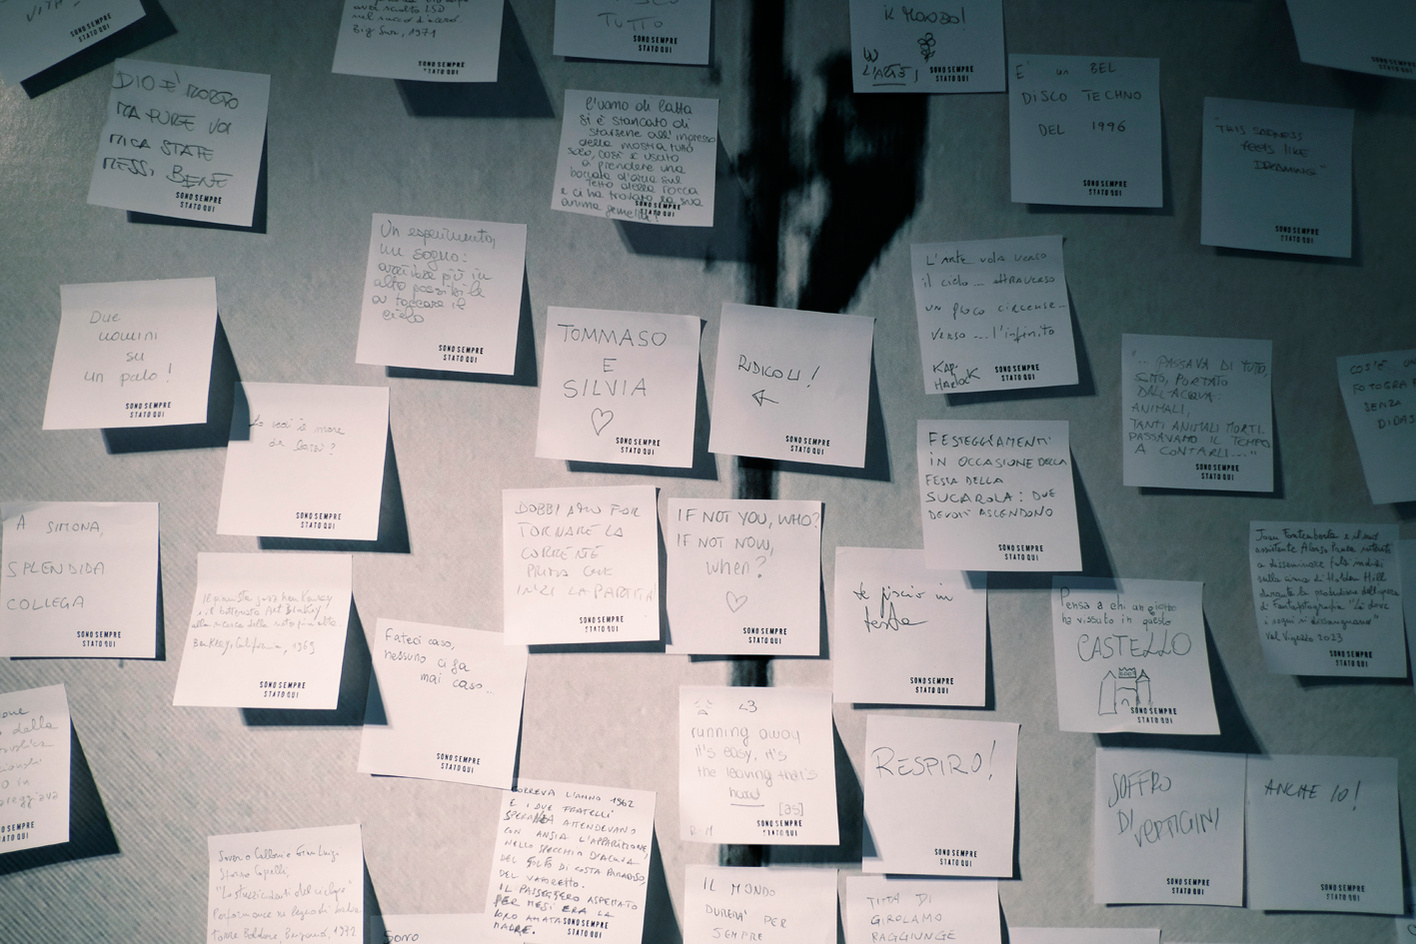 VITA
SONO SEMPRE
STATO QUI
Big Sur, 1971
SONO SEMPRE
STATO QUI
TUTTO
SONO SEMPRE
STATO QUI
W
L'ARTE!
SONO SEMPRE
STATO QUI
SONO SEMPRE
STATO QUI
DIO E' MORTO
MA PURE VOI
MICA STATE
MESSI BENE
SONO SEMPRE
STATO QUI
l'uomo di latta
si è stancato di
starsene all'ingresso
della mostra tutto
solo, così è uscito
a prendere una
boccata d'aria sul
tetto della rocca
e ci ha trovato la sua
anima gemella!
SONO SEMPRE
STATO QUI
E' un BEL
DISCO TECHNO
DEL 1996
SONO SEMPRE
STATO QUI
"THIS SADNESS
feels like
DROWNING"
SONO SEMPRE
STATO QUI
Un esperimento,
un sogno:
arrivare più in
alto possibile
a toccare il
cielo
SONO SEMPRE
STATO QUI
L'Arte vola verso
il cielo... attraverso
un gioco circense...
verso... l'infinito
SONO SEMPRE
STATO QUI
Due
uomini
su
un palo!
SONO SEMPRE
STATO QUI
TOMMASO
E
SILVIA
SONO SEMPRE
STATO QUI
RIDICOLI!
SONO SEMPRE
STATO QUI
"... PASSAVA DI TUTTO,
SOTTO, PORTATO
DALL'ACQUA:
ANIMALI,
TANTI ANIMALI MORTI.
PASSAVAMO IL TEMPO
A CONTARLI..."
SONO SEMPRE
STATO QUI
COS'È
SENZA
Lo vedi il mare
da lassù?
SONO SEMPRE
STATO QUI
FESTEGGIAMENTI
IN OCCASIONE DELLA
FESTA DELLA
SUCAROLA: DUE
DEVOTI ASCENDONO
SONO SEMPRE
STATO QUI
A SIMONA,
SPLENDIDA
COLLEGA
SONO SEMPRE
STATO QUI
DOBBIAMO FAR
TORNARE LA
CORRENTE
PRIMA CHE
INIZI LA PARTITA
SONO SEMPRE
STATO QUI
IF NOT YOU, WHO?
IF NOT NOW,
when?
SONO SEMPRE
STATO QUI
assistente
a disseminare falsi indizi
sulla cima di Holden Hill
durante la produzione dell'opera
di Fantafotografia "Là dove
i sogni si disegnano"
Val Vigezzo 2023
SONO SEMPRE
STATO QUI
te piscio in
testa
SONO SEMPRE
STATO QUI
Il pianista jazz
e il batterista Art Blakey
alla ricerca della nota più alta.
Berkeley, California, 1969
SONO SEMPRE
STATO QUI
Pensa a chi un giorno
ha vissuto in questo
CASTELLO
SONO SEMPRE
STATO QUI
Fateci caso,
nessuno ci fa
mai caso...
SONO SEMPRE
STATO QUI
della
SONO SEMPRE
STATO QUI
<3
running away
it's easy, it's
the leaving that's
hard
SONO SEMPRE
STATO QUI
RESPIRO!
SONO SEMPRE
STATO QUI
SOFFRO
DI VERTIGINI
SONO SEMPRE
STATO QUI
ANCHE IO!
SONO SEMPRE
STATO QUI
CORREVA L'ANNO 1962
E I DUE FRATELLI
SPERANZA ATTENDEVANO
CON ANSIA L'APPARIZIONE,
NELLO SPECCHIO D'ACQUA
DEL GOLFO DI COSTA PARADISO,
DEL VAPORETTO.
IL PASSEGGERO ASPETTATO
PER MESI ERA LA
LORO AMATA
MADRE.
SONO SEMPRE
STATO QUI
Performance
Torre Boldone, Bergamo, 1972
IL MONDO
DURERA' PER
SEMPRE
TINA DI
GIROLAMO
RAGGIUNGE
Sono